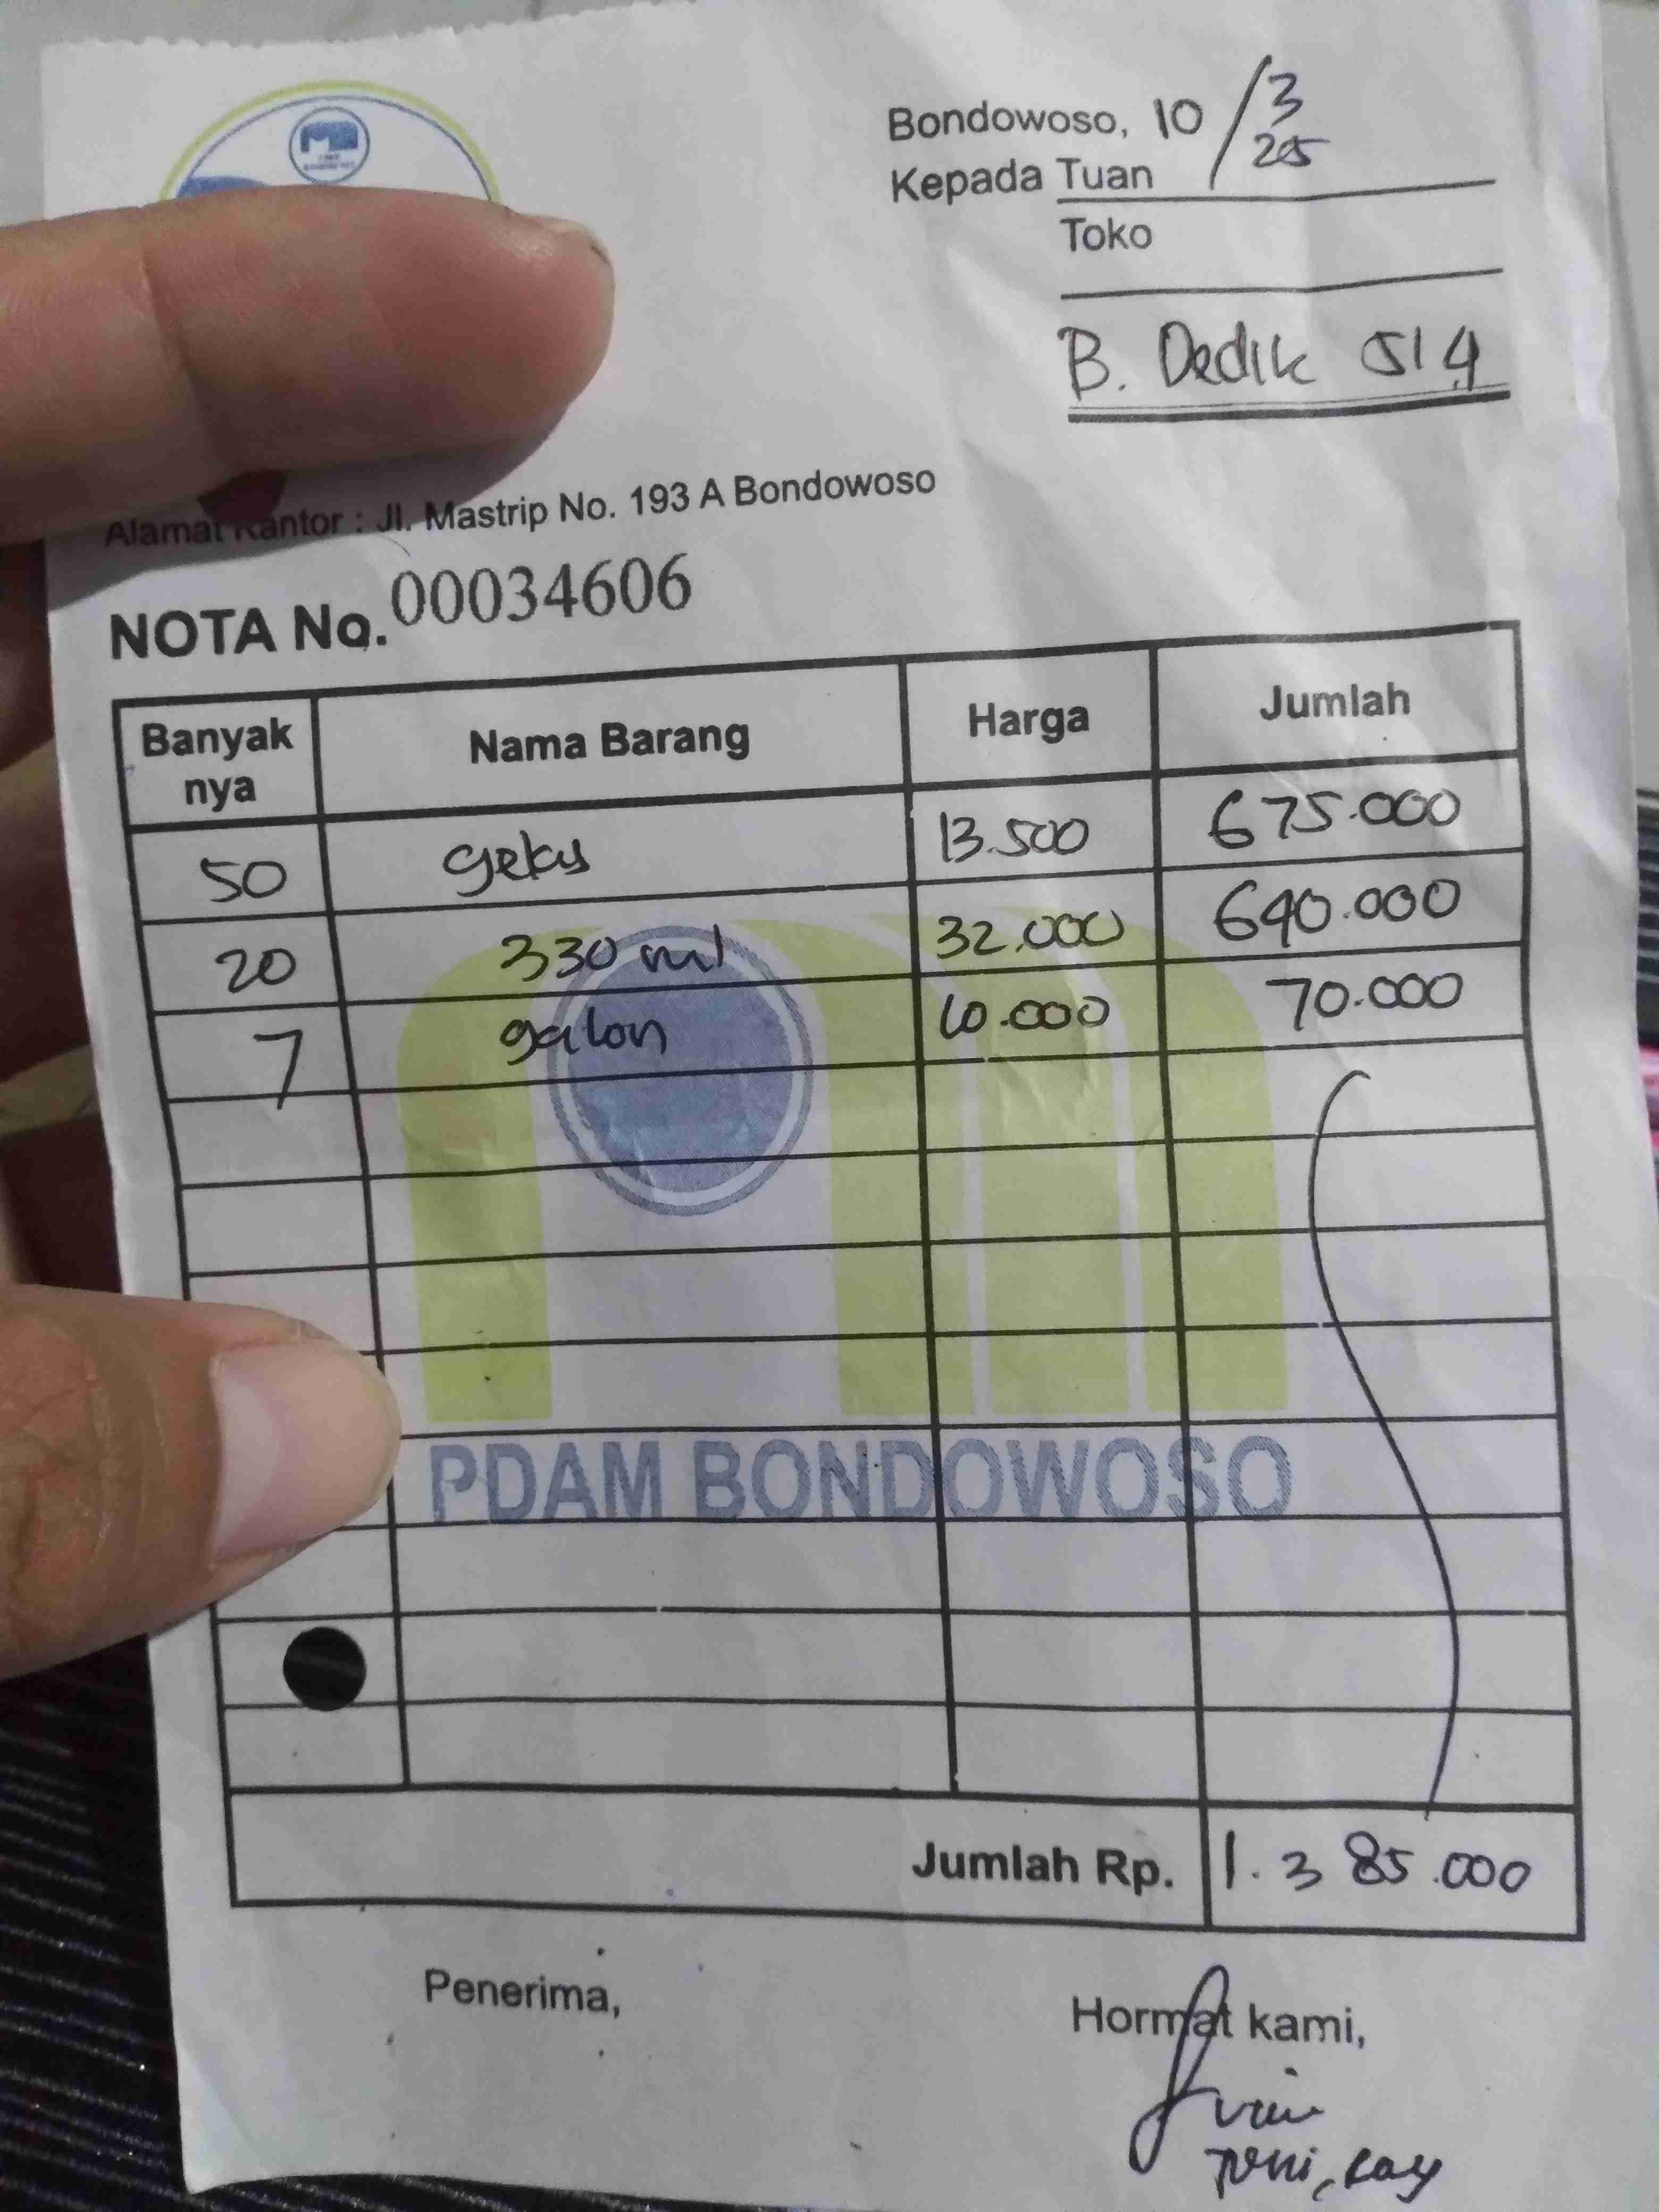 Bondowoso, 10/3 25
Kepada Tuan
Toko
B. Dedik 514
Alamat Kantor : Jl. Mastrip No. 193 A Bondowoso
NOTA No. 00034606
Banyak nya Nama Barang Harga Jumlah
50 gelas 13.500 675.000
20 330 ml 32.000 640.000
7 galon 10.000 70.000
PDAM BONDOWOSO
Jumlah Rp. 1.385.000
Penerima, Hormat kami,